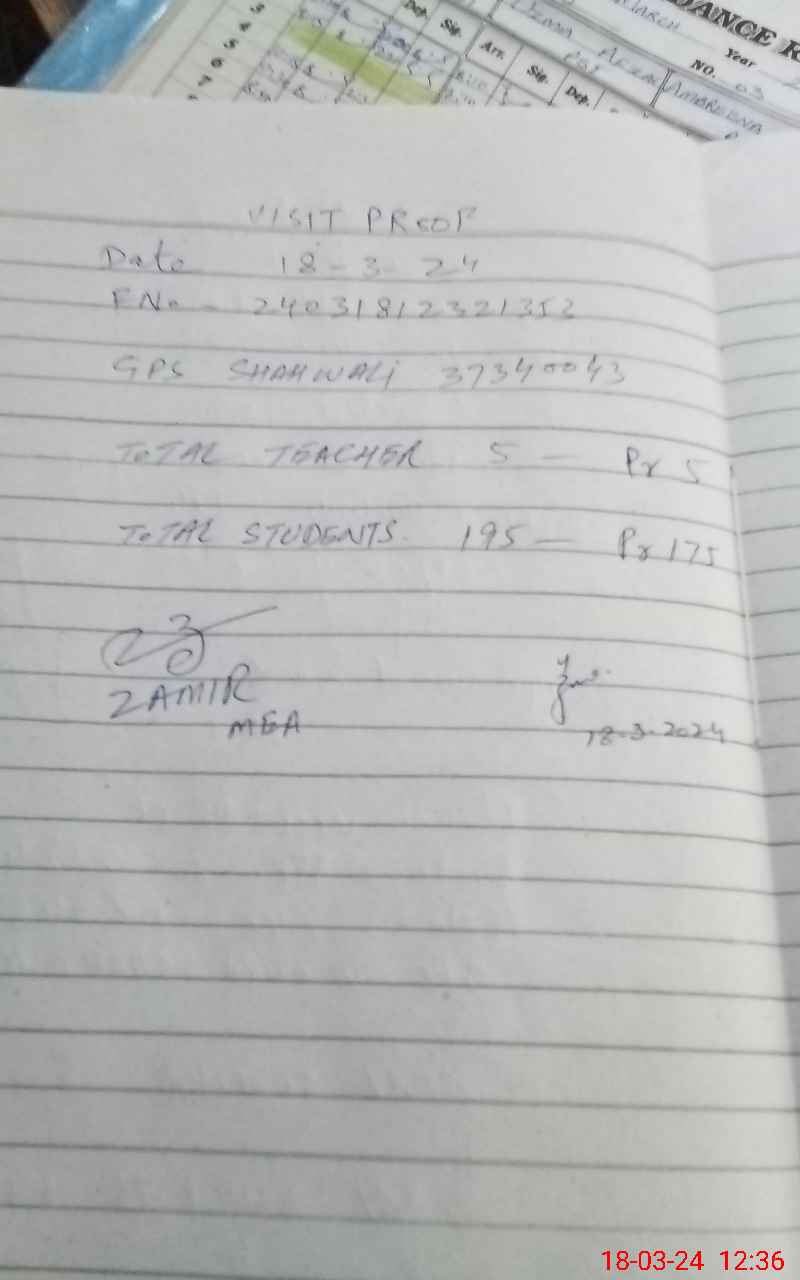 3
4
5
6
7
Dep.
Sig.
Arr.
Sig.
Dep.
DANCE R
Year
NO. 03
VISIT PROOF
Date 18-3-24
F No - 24031812321352
GPS SHAHWALI 37340043
ToTAL TEACHER 5 — Pr 5
ToTAL STUDENTS. 195 — Pr 175
ZAMIR
MEA
18-3-2024
18-03-24 12:36